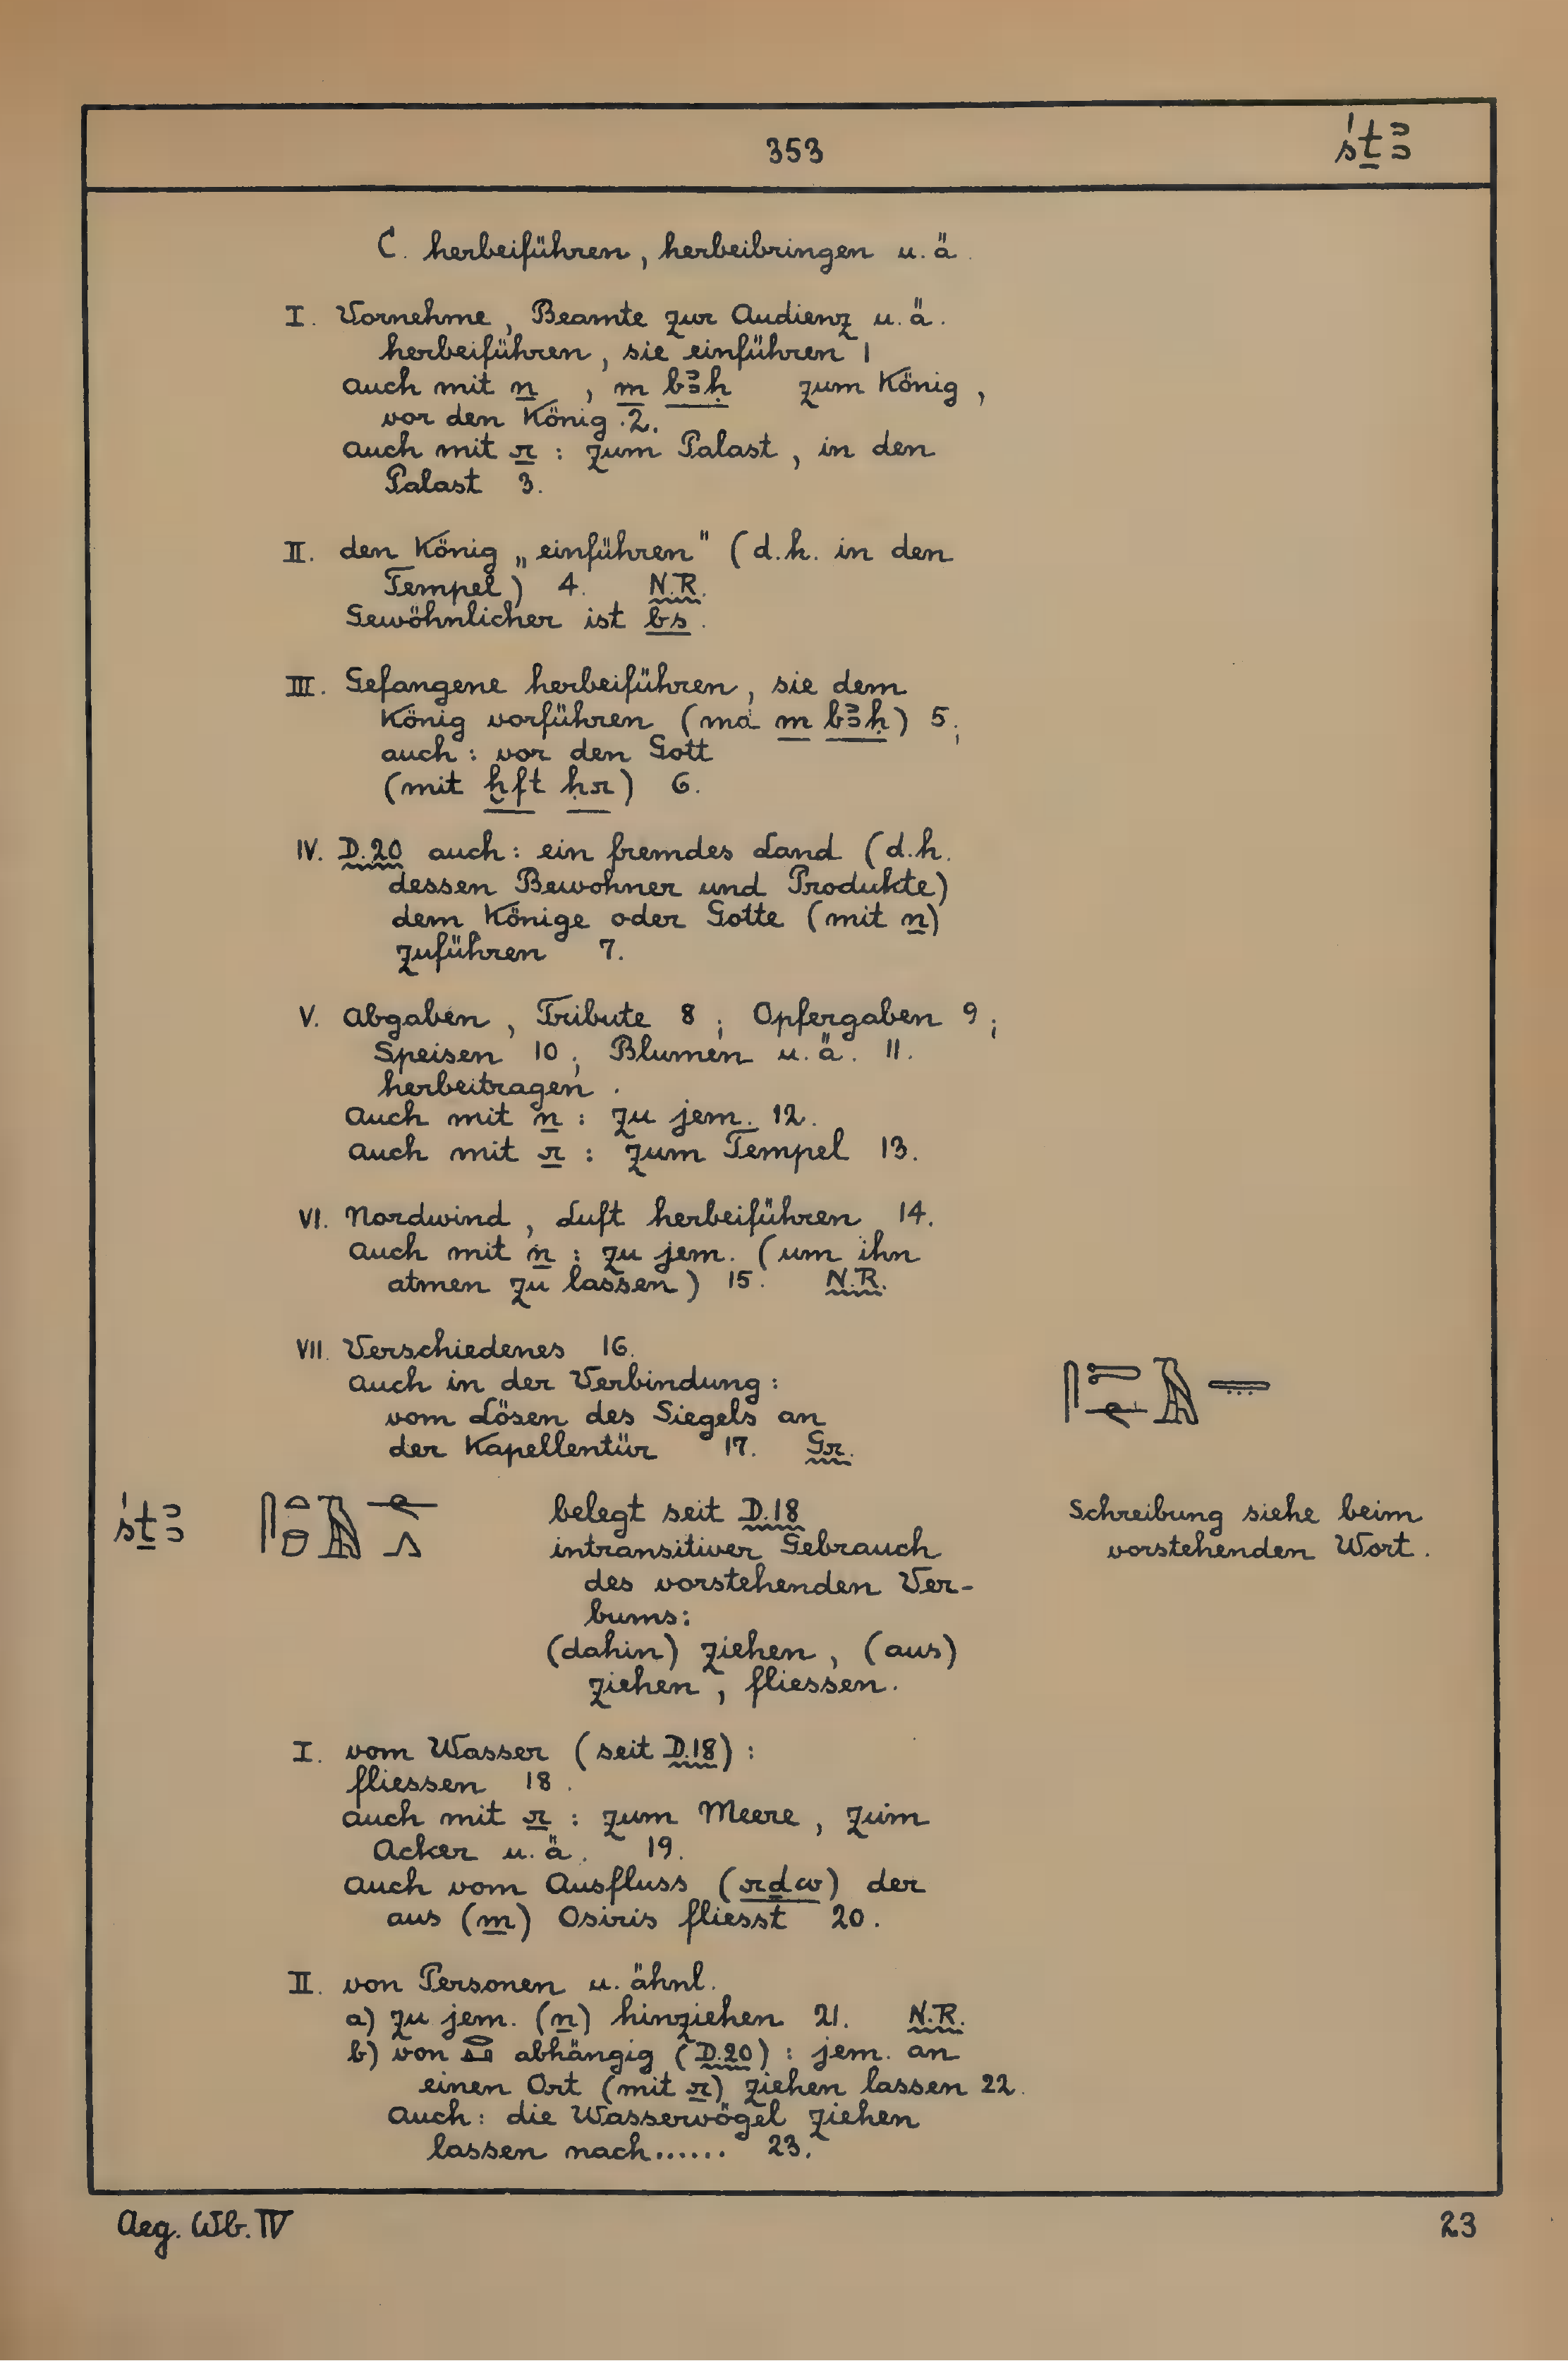 353
śṯꜣ
C. herbeiführen, herbeibringen u.ä.
I. Vornehme, Beamte zur Audienz u.ä.
herbeiführen, sie einführen 1
auch mit n , m bꜣḥ zum König,
vor den König 2.
auch mit r : zum Palast, in den
Palast 3.
II. den König „einführen" (d.h. in den
Tempel) 4. N.R.
Gewöhnlicher ist bs.
III. Gefangene herbeiführen, sie dem
König vorführen (mit m bꜣḥ) 5;
auch: vor den Gott
(mit ḫft ḥr) 6.
IV. D.20 auch: ein fremdes Land (d.h.
dessen Bewohner und Produkte)
dem Könige oder Gotte (mit n)
zuführen 7.
V. Abgaben, Tribute 8; Opfergaben 9;
Speisen 10; Blumen u.ä. 11.
herbeitragen.
Auch mit n : zu jem. 12.
Auch mit r : zum Tempel 13.
VI. Nordwind, Luft herbeiführen 14.
Auch mit n : zu jem. (um ihn
atmen zu lassen) 15. N.R.
VII. Verschiedenes 16.
Auch in der Verbindung:
vom Lösen des Siegels an
der Kapellentür 17. Gr.
śṯꜣ belegt seit D.18 Schreibung siehe beim
intransitiver Gebrauch vorstehenden Wort.
des vorstehenden Ver-
bums:
(dahin) ziehen, (aus)
ziehen, fliessen.
I. vom Wasser (seit D.18) :
fliessen 18.
auch mit r : zum Meere, zum
Acker u.ä. 19.
Auch vom Ausfluss (rḏw) der
aus (m) Osiris fliesst 20.
II. von Personen u. ähnl.
a) zu jem. (n) hinziehen 21. N.R.
b) von abhängig (D.20) : jem. an
einen Ort (mit r) ziehen lassen 22.
Auch: die Wasservögel ziehen
lassen nach...... 23.
Aeg. Wb. IV
23